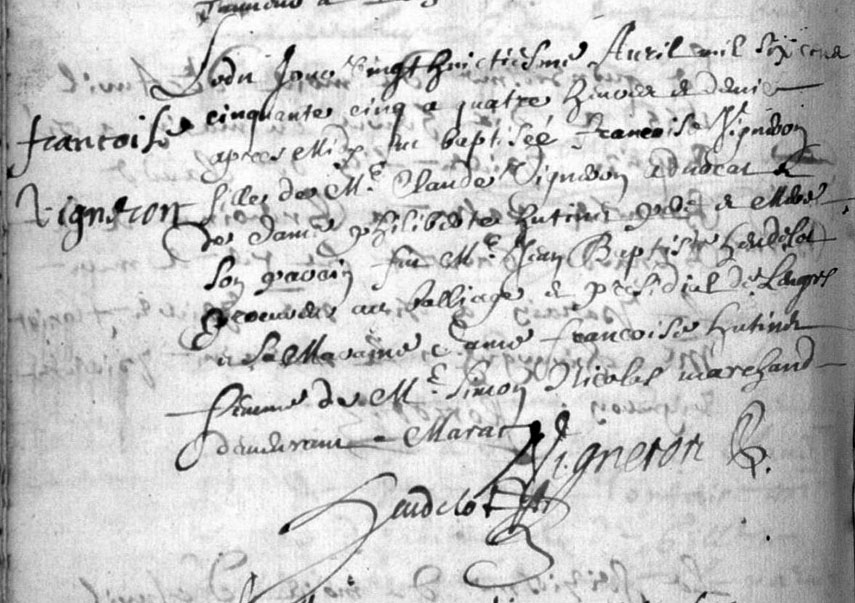 Ledit Jour vingt huictiesme Avril mil six cent
cinquante cinq a quatre heures et demie
apres Midy fut baptisée Francoise Vigneron
fille de M.e Claude Vigneron advocat et
de dame philiberte hutinet
Son parain fut M.e Jean Baptiste heudelot
procureur au balliage et presidial de Langres
et sa Maraine dame francoise hutinet
femme de M.e Simon Nicolas marchand
demeurant a Marac
francoise
Vigneron
Vigneron
heudelot